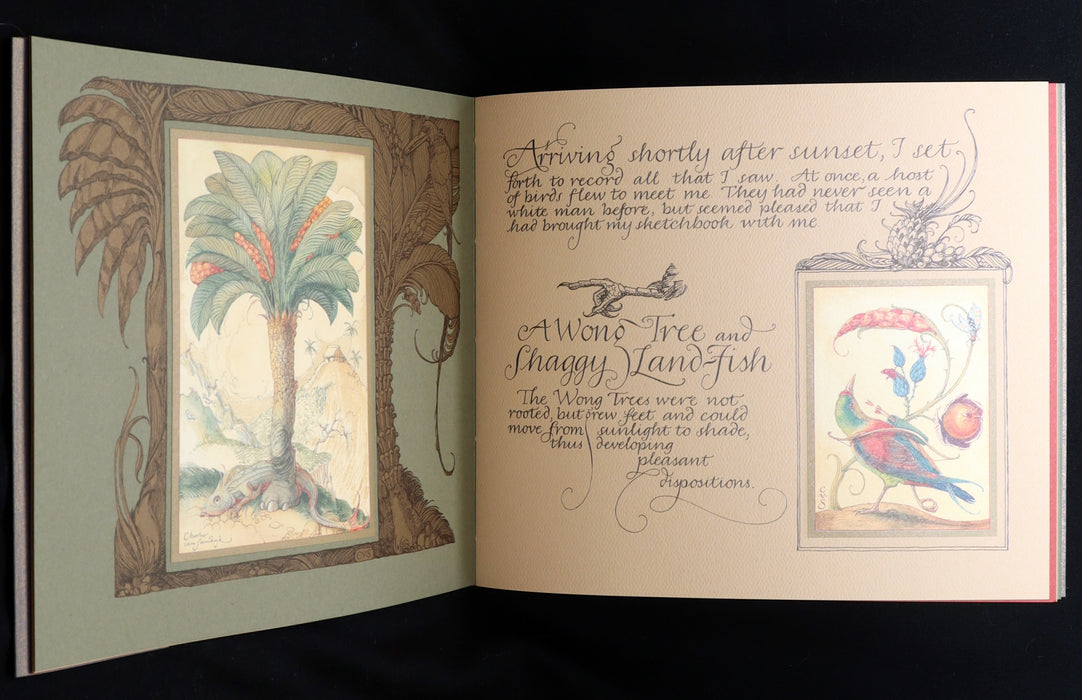 Charles
van Sandwyk
CVS
Arriving shortly after sunset, I set
forth to record all that I saw. At once, a host
of birds flew to meet me. They had never seen a
white man before, but seemed pleased that I
had brought my sketchbook with me.
A Wong Tree and
Shaggy Land-Fish
The Wong Trees were not
rooted, but grew feet and could
move from sunlight to shade,
thus developing
pleasant
dispositions.